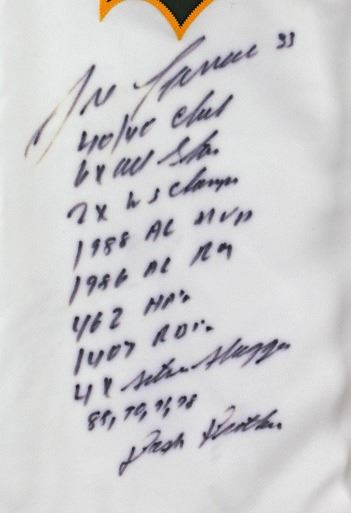 Jose Canseco 33
40/40 Club
6x All Star
2x WS Champs
1988 AL MVP
1986 AL ROY
462 HR's
1407 RBI's
4x Silver Slugger
88, 90, 91, 98
Bash Brother